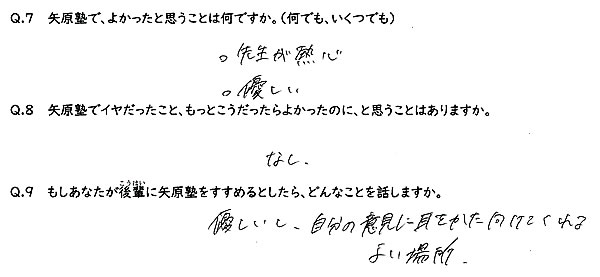 Q.7 矢原塾で、よかったと思うことは何ですか。(何でも、いくつでも)
○先生が熱心
○優しい
Q.8 矢原塾でイヤだったこと、もっとこうだったらよかったのに、と思うことはありますか。
なし。
Q.9 もしあなたが後輩に矢原塾をすすめるとしたら、どんなことを話しますか。
優しいし、自分の意見に耳をかた向けてくれる
よい場所。